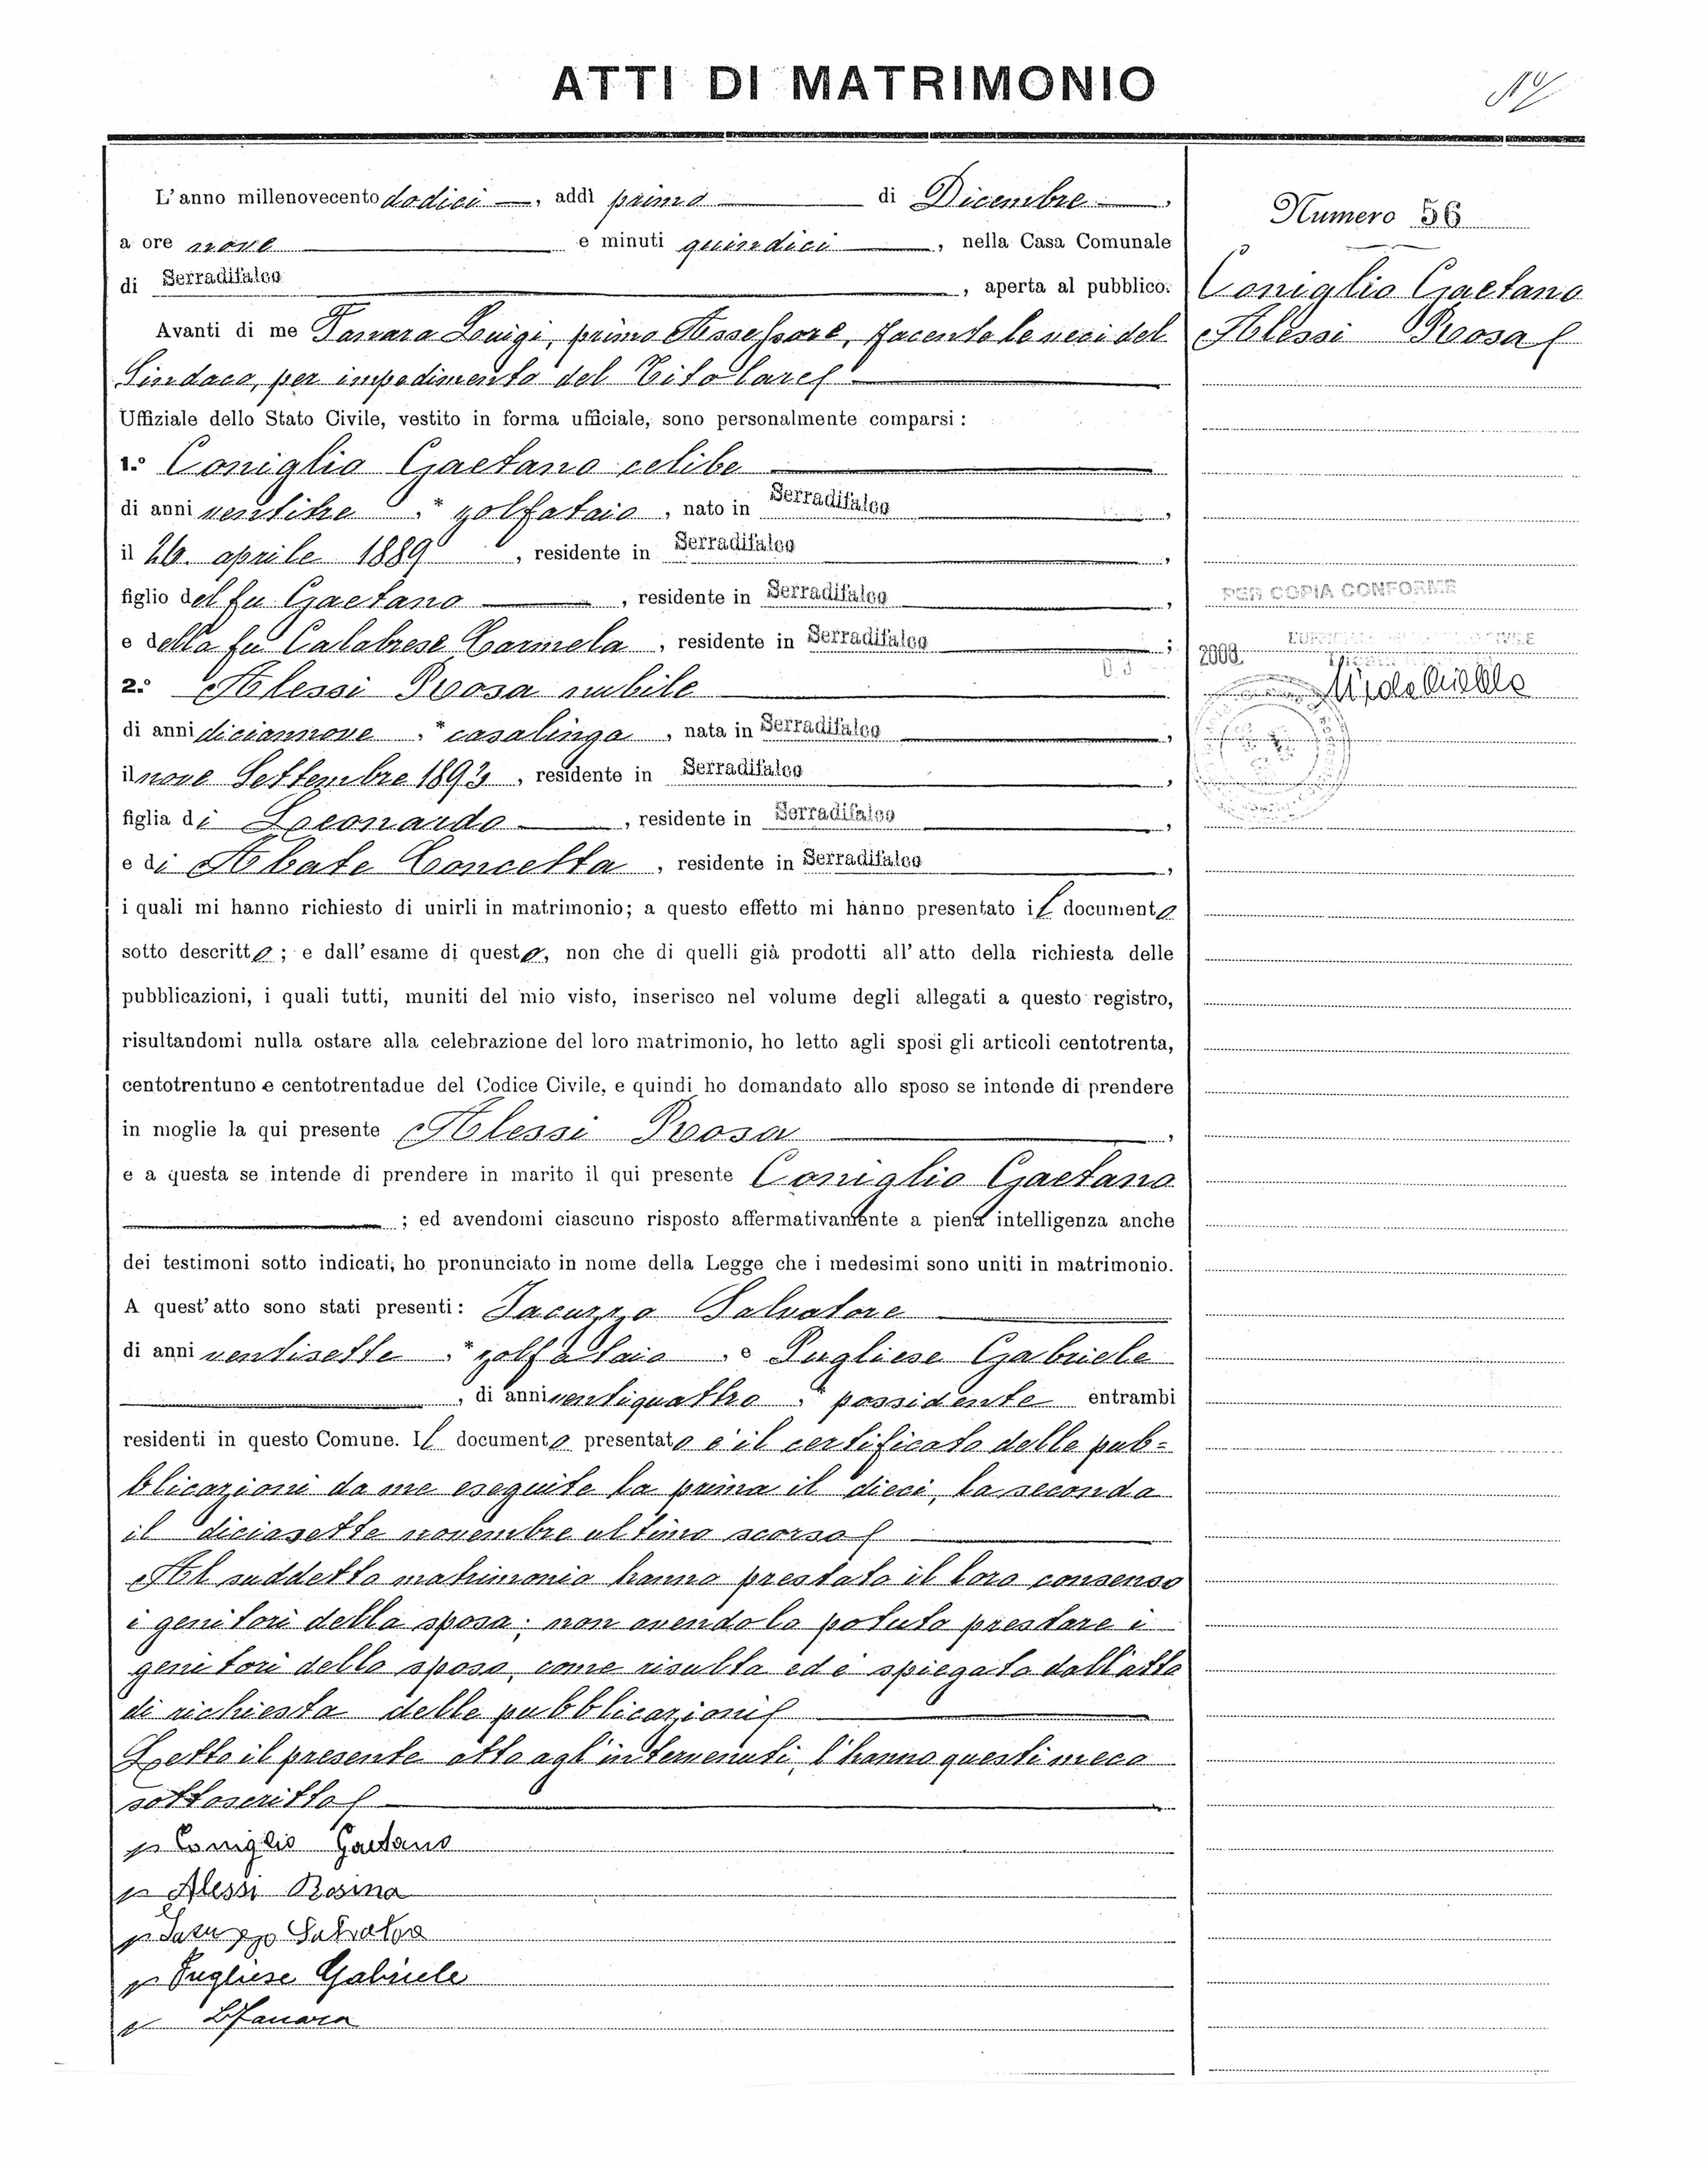 ATTI DI MATRIMONIO
L'anno millenovecento dodici, addì primo di Dicembre,
a ore nove e minuti quindici, nella Casa Comunale
di Serradifalco, aperta al pubblico.
Avanti di me Fanara Luigi, primo Assessore, facente le veci del
Sindaco, per impedimento del Titolare
Uffiziale dello Stato Civile, vestito in forma ufficiale, sono personalmente comparsi:
1.° Coniglio Gaetano celibe
di anni ventitre, * zolfataio, nato in Serradifalco,
il 26 aprile 1889, residente in Serradifalco,
figlio del fu Gaetano, residente in Serradifalco,
e della fu Calabrese Carmela, residente in Serradifalco;
2.° Alessi Rosa nubile
di anni diciannove, * casalinga, nata in Serradifalco,
il nove Settembre 1893, residente in Serradifalco,
figlia di Leonardo, residente in Serradifalco,
e di Abate Concetta, residente in Serradifalco,
i quali mi hanno richiesto di unirli in matrimonio; a questo effetto mi hanno presentato il documento
sotto descritto; e dall'esame di questo, non che di quelli già prodotti all'atto della richiesta delle
pubblicazioni, i quali tutti, muniti del mio visto, inserisco nel volume degli allegati a questo registro,
risultandomi nulla ostare alla celebrazione del loro matrimonio, ho letto agli sposi gli articoli centotrenta,
centotrentuno e centotrentadue del Codice Civile, e quindi ho domandato allo sposo se intende di prendere
in moglie la qui presente Alessi Rosa,
e a questa se intende di prendere in marito il qui presente Coniglio Gaetano
; ed avendomi ciascuno risposto affermativamente a piena intelligenza anche
dei testimoni sotto indicati, ho pronunciato in nome della Legge che i medesimi sono uniti in matrimonio.
A quest'atto sono stati presenti: Iacuzzo Salvatore
di anni ventisette, * zolfataio, e Pugliese Gabriele
, di anni ventiquattro, * possidente entrambi
residenti in questo Comune. Il documento presentato è il certificato delle pub=
blicazioni da me eseguite la prima il dieci, la seconda
il diciasette novembre ultimo scorso
Al suddetto matrimonio hanno prestato il loro consenso
i genitori della sposa; non avendolo potuto prestare i
genitori dello sposo, come risulta ed è spiegato dall'atto
di richiesta delle pubblicazioni
Letto il presente atto agl'intervenuti, l'hanno questi meco
sottoscritto
Coniglio Gaetano
Alessi Rosina
Iacuzzo Salvatore
Pugliese Gabriele
L Fanara
Numero 56
Coniglio Gaetano
Alessi Rosa
PER COPIA CONFORME